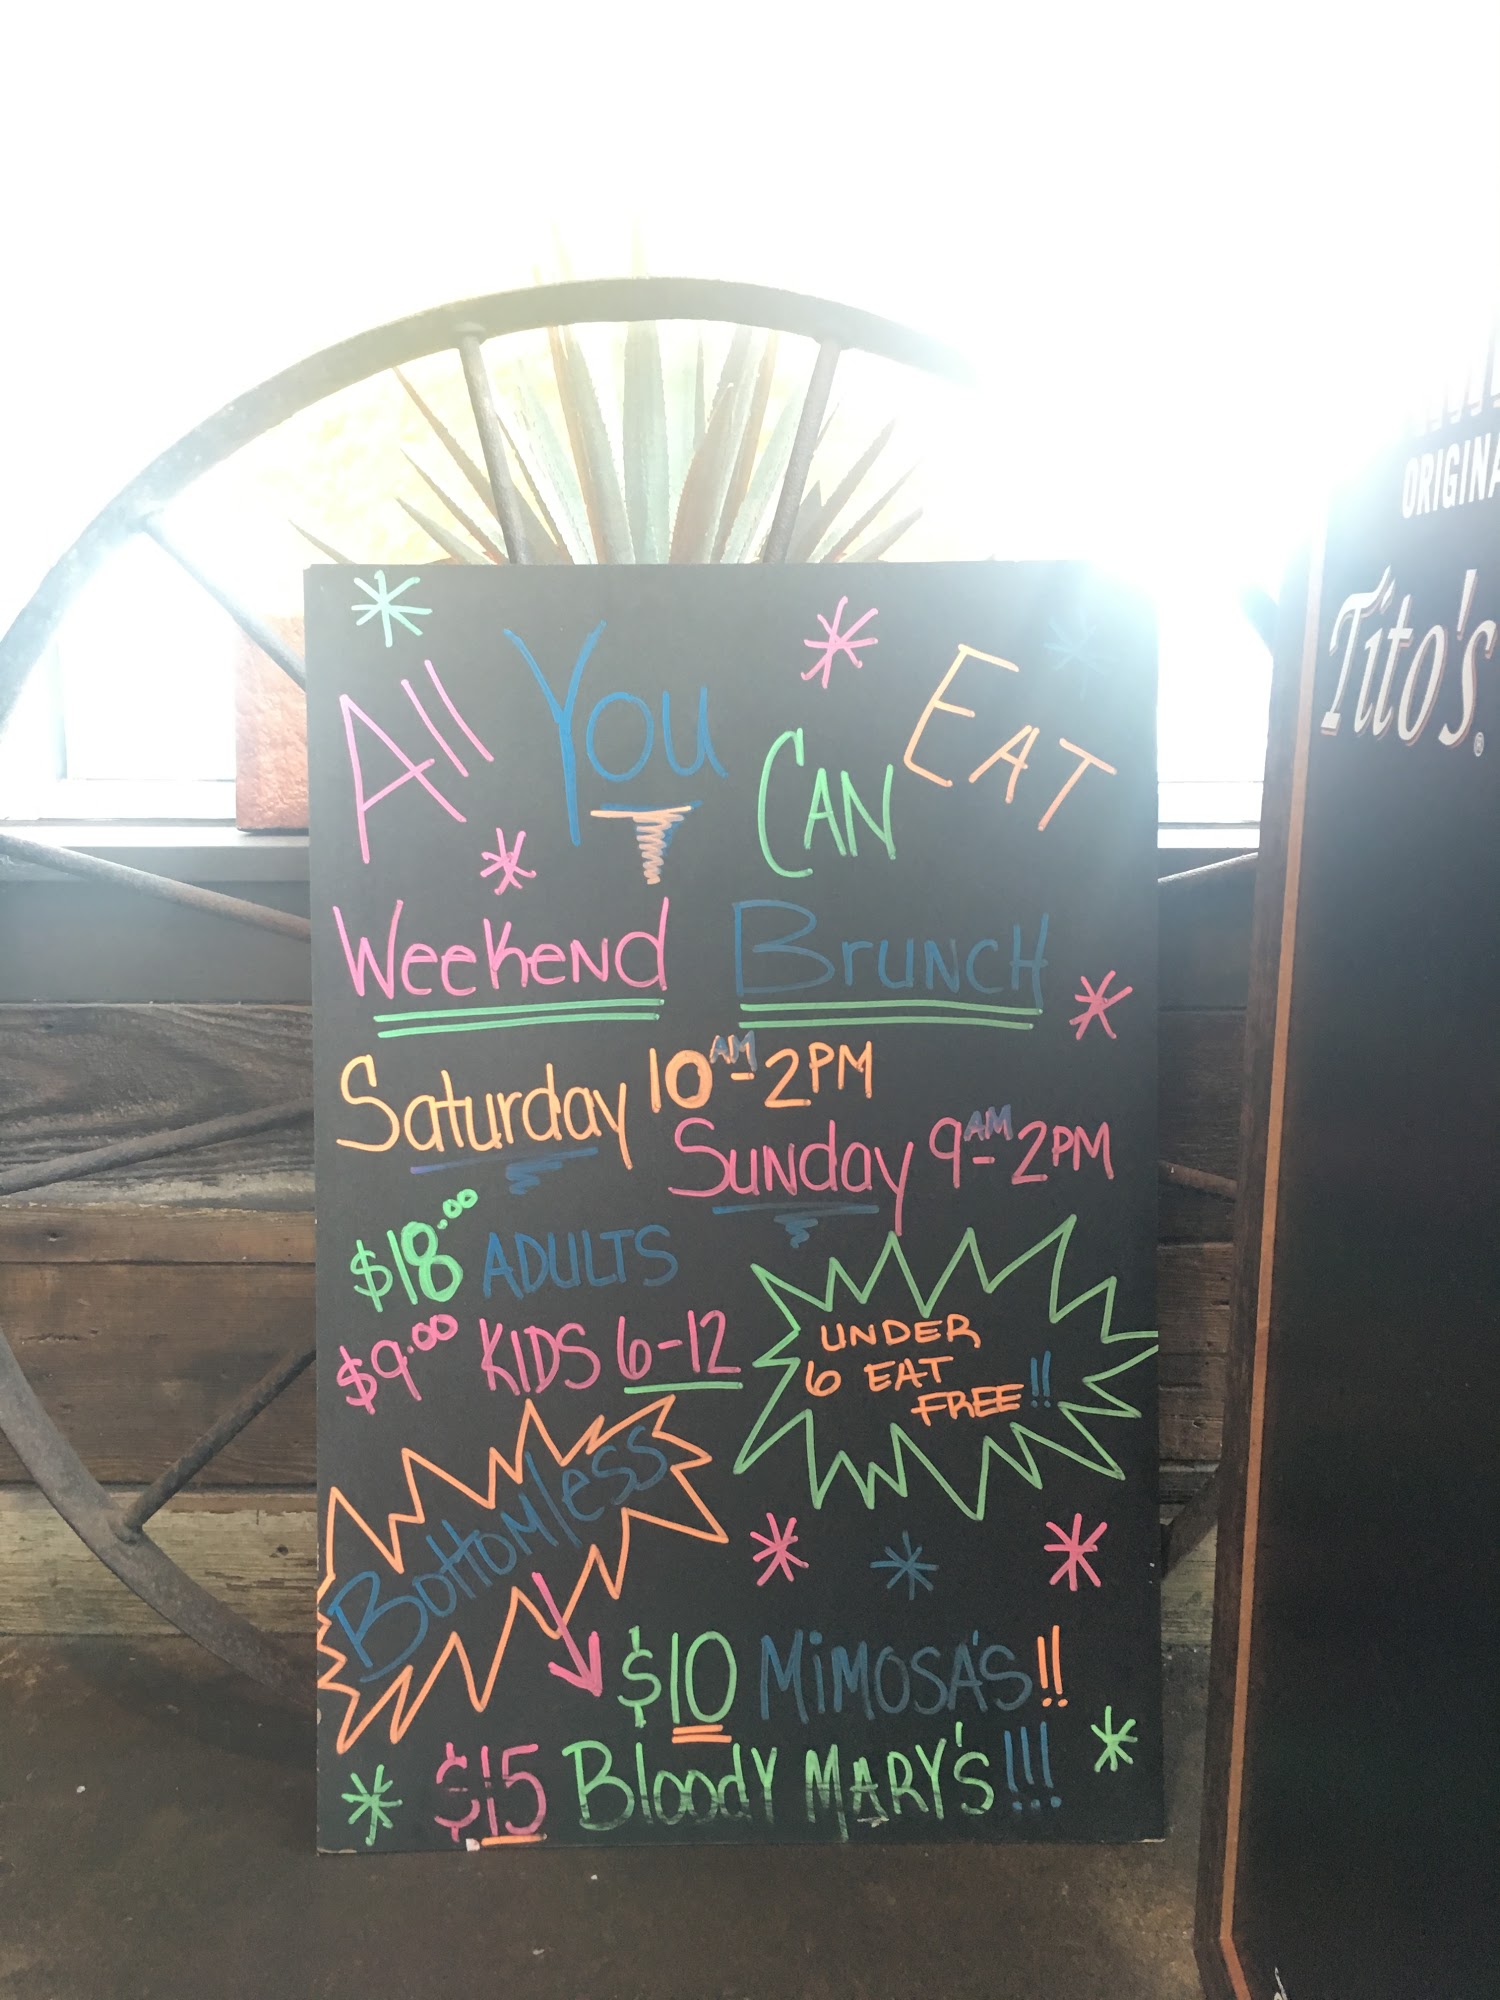 All You Can Eat
Weekend Brunch
Saturday 10AM-2PM
Sunday 9AM-2PM
$18.00 ADULTS
$9.00 KIDS 6-12
UNDER
6 EAT
FREE!!
Bottomless
$10 MiMOSA'S!!
$15 Bloody MARY'S!!!
ORIGINA
Tito's®